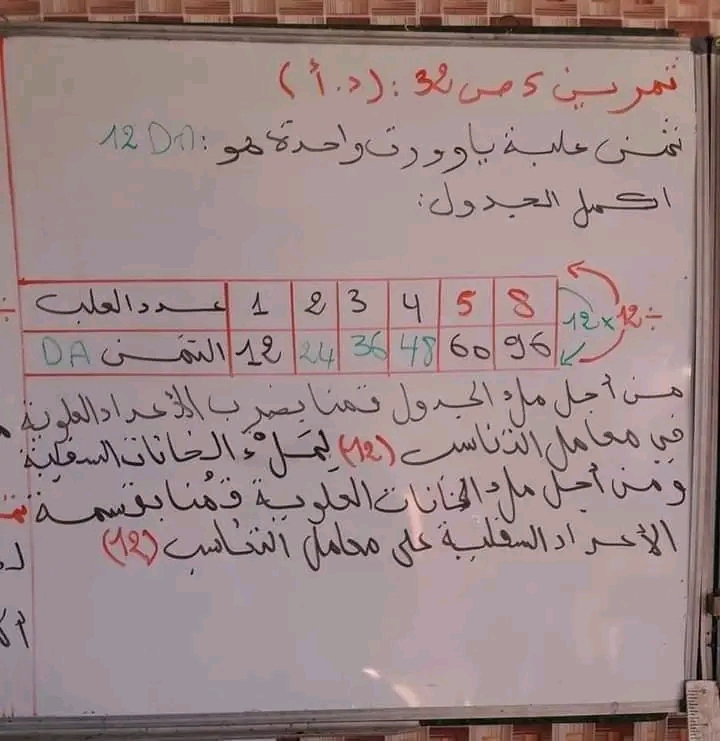 تمرين 5 ص 32 : (د.أ)
ثمن علبة ياوورت واحدة هو : 12 DA
اكمل الجدول:
عدد العلب 1 2 3 4 5 8
الثمن DA 12 24 36 48 60 96
12 × 12 ÷
من أجل ملء الجدول قمنا بضرب الأعداد العلوية
في معامل التناسب (12) لِمَلْءِ الخانات السفلية
ومن أجل ملء الخانات العلوية قمُنا بقسمة
الأعداد السفلية على معامل التناسب (12)